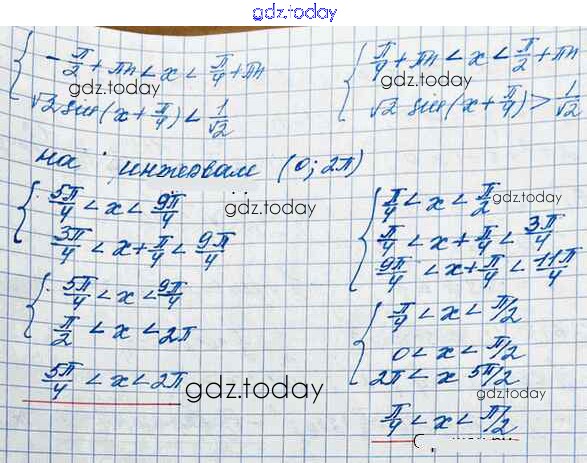 gdz.today
{ -π/2 + πn < x < π/4 + πn
√2 sin(x + π/4) < 1/√2
{ π/4 + πn < x < π/2 + πn
√2 sin(x + π/4) > 1/√2
gdz.today
gdz.today
на интервал (0; 2π)
{ 5π/4 < x < 9π/4
3π/4 < x + π/4 < 9π/4
gdz.today
{ 5π/4 < x < 9π/4
π/2 < x < 2π
5π/4 < x < 2π
gdz.today
{ π/4 < x < π/2
gdz.today
π/4 < x + π/4 < 3π/4
9π/4 < x + π/4 < 11π/4
{ π/4 < x < π/2
0 < x < π/2
2π < x 5π/2
gdz.today
π/4 < x < π/2